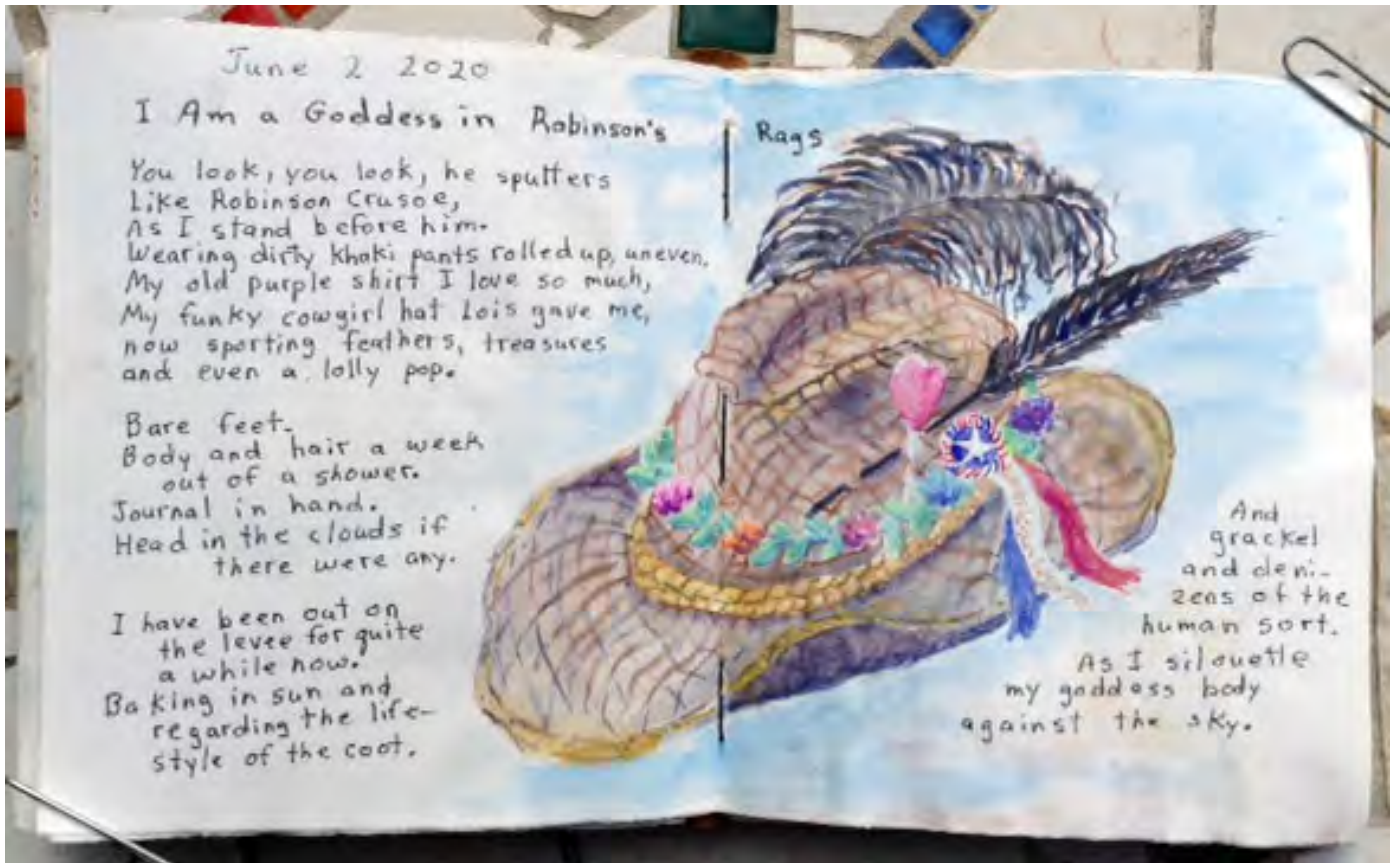 June 2 2020
I Am a Goddess in Robinson's Rags
You look, you look, he sputters
Like Robinson Crusoe,
As I stand before him.
Wearing dirty khaki pants rolled up, uneven.
My old purple shirt I love so much,
My funky cowgirl hat Lois gave me,
now sporting feathers, treasures
and even a lolly pop.
Bare feet.
Body and hair a week
out of a shower.
Journal in hand.
Head in the clouds if
there were any.
I have been out on
the levee for quite
a while now.
Baking in sun and
regarding the life-
style of the coot.
And
grackel
and deni-
zens of the
human sort.
As I silouette
my goddess body
against the sky.